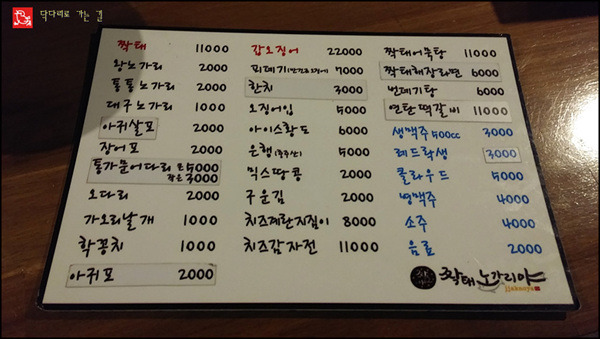 닥다리로 가는 길
짝태 11000
왕노가리 2000
통통노가리 2000
대구노가리 1000
아귀살포 2000
장어포 2000
통가문어다리 큰 5000
작은 3000
오다리 2000
가오리날개 1000
학꽁치 1000
아귀포 2000
갑오징어 22000
피데기(반건조오징어) 7000
한치 3000
오징어입 5000
아이스황도 6000
은행(광주산) 5000
믹스땅콩 2000
구운김 2000
치즈계란지짐이 8000
치즈감자전 11000
짝태어묵탕 11000
짝태해장라면 6000
번데기탕 6000
연탄떡갈비 11000
생맥주 500cc 3000
레드락생 3000
클라우드 5000
병맥주 4000
소주 4000
음료 2000
짝태 노가리야